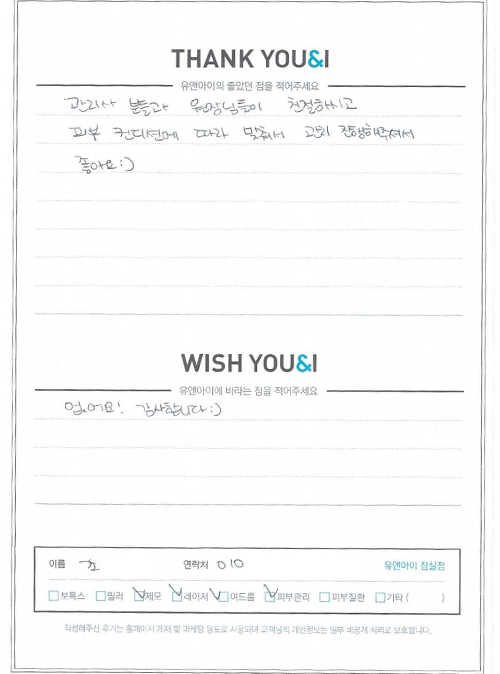 THANK YOU&I
유앤아이의 좋았던 점을 적어주세요
관리사 분들과 원장님들이 친절하시고
피부 컨디션에 따라 맞춰서 관리 진행해주셔서
좋아요:)
WISH YOU&I
유앤아이에 바라는 점을 적어주세요
없어요! 감사합니다:)
이름 조 연락처 010 유앤아이 잠실점
보톡스 필러 제모 레이저 여드름 피부관리 피부질환 기타 ( )
작성해주신 후기는 홈페이지 게재 및 마케팅 용도로 사용되며 고객님의 개인정보는 일부 비공개 처리로 보호됩니다.